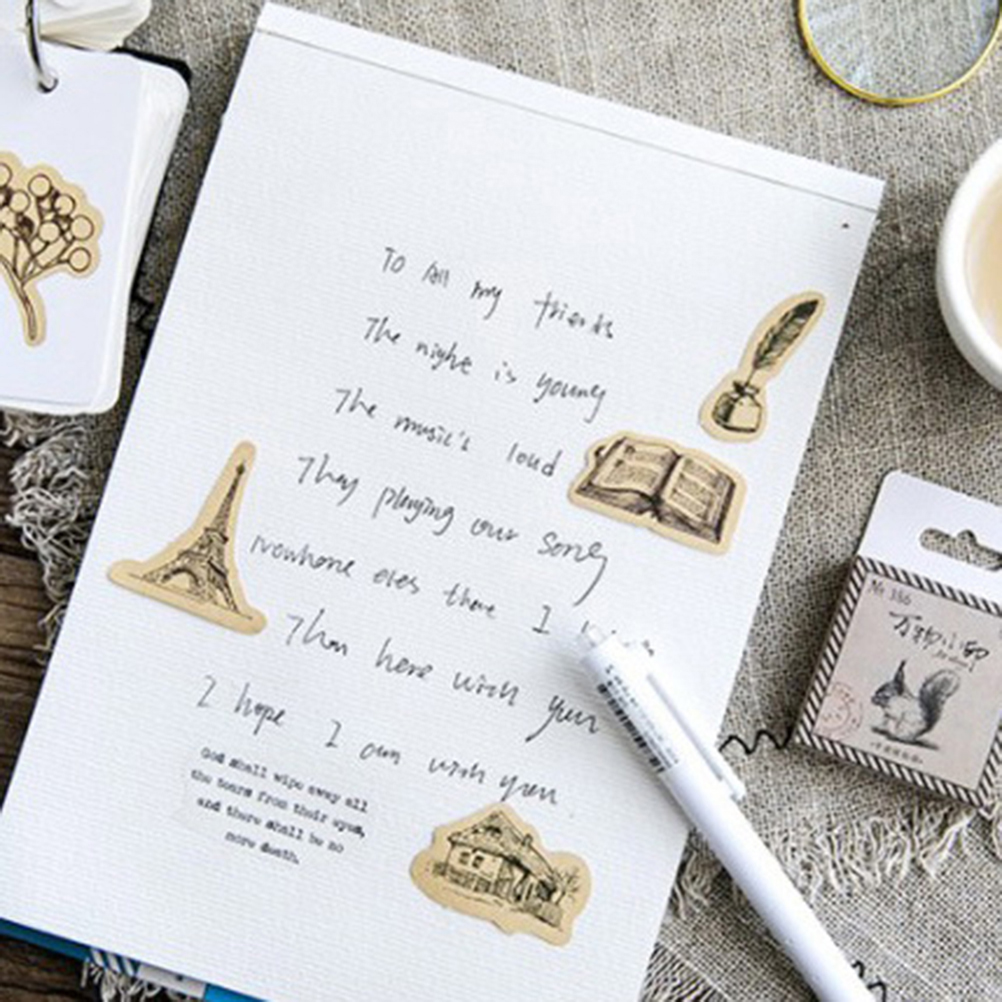 To All my friends
The night is young
The music's loud
They playing our song
Nowhere eles there I
Then here with you
I hope I am with you
God shall wipe away all
the tears from their eyes,
and there shall be no
more death.
No 386
万物小印